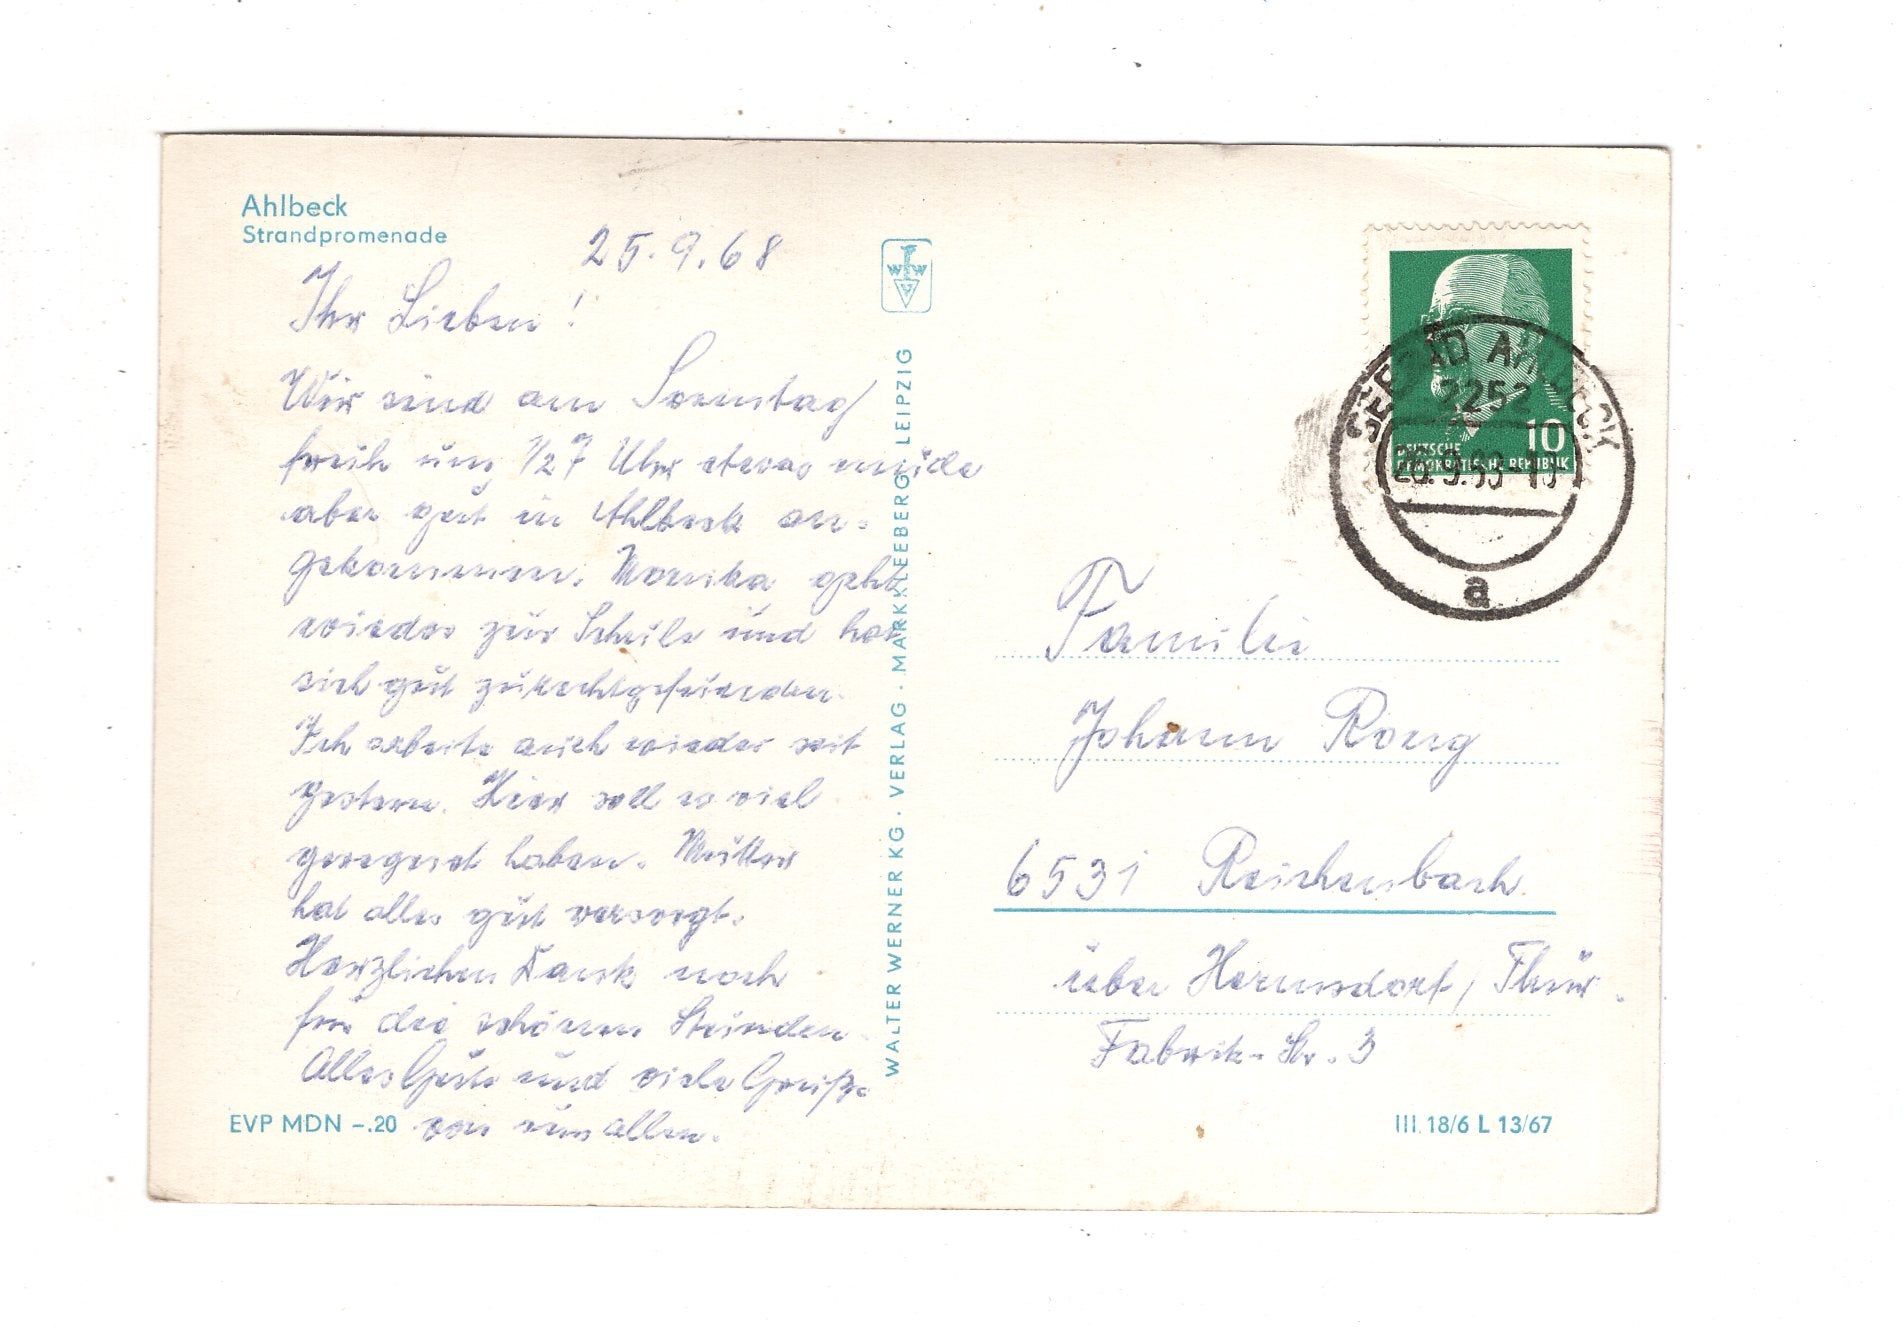 Ahlbeck
Strandpromenade
25.9.68
Ihr Lieben!
Wir sind am Sonntag
früh um 1/2 7 Uhr etwas müde
aber gut in Ahlbeck an-
gekommen. Monika geht
wieder zur Schule und hat
sich gut zurechtgefunden.
Ich arbeite auch wieder seit
gestern. Hier soll es viel
geregnet haben. Mutter
hat alles gut versorgt.
Herzlichen Dank noch
für die schönen Stunden.
Alles Gute und viele Grüße
von uns allen.
EVP MDN –.20
WALTER WERNER KG · VERLAG · MARKKLEEBERG · LEIPZIG
SEEBAD AHLBECK
2252
a
10
DEUTSCHE
DEMOKRATISCHE REPUBLIK
Familie
Johann
6531 Reichenbach
über Hermsdorf / Thür.
Fabrik-Str. 3
III 18/6 L 13/67